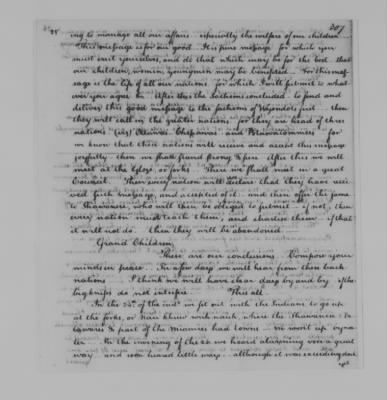 307
25
ing to manage all our affairs especially the welfare of our children
This message is for our good. It is pure message for which you
must exert yourselves, and do that which may be for the best that
our children, women, young men may be benefited. For this mes-
sage is the life of all our nations for which I will submit to what
ever you agree to. After this the Sachems concluded to send and
deliver this good message to the fathoms of Wyondots first then
they will call in the greater nations for they are head of three
nations (viz) Ottawas Chepawas and Putawatommees for
we know that their nations will receive and accept this message
joyfully then we shall stand strong & pure After this we will
meet at the Glaze, or forks. There we shall meet in a great
Council. Then every nation will declare that they have recei-
ved such message, and accepted of it and then offer the same
to Shawanese, who will then be obliged to submit if not, then
every nation must teach them, and chastise them if that
it will not do. then they will be abandoned
Grand Children,
These are our conclusions. Compose your
minds in peace. In a few days we will hear from these back
nations. I think we will have clear days by and by if the
big knifs do not interfere. This all
In the 24th of the inst we set out with the Indians to go up
at the forks, or Naw Khuw wich naick, where the Shawanese De
lawares & part of the Miamies had towns we went up by wa
ter In the morning of the 26 we heard alarming over a great
way and soon heard little ways although it was exceeding dark